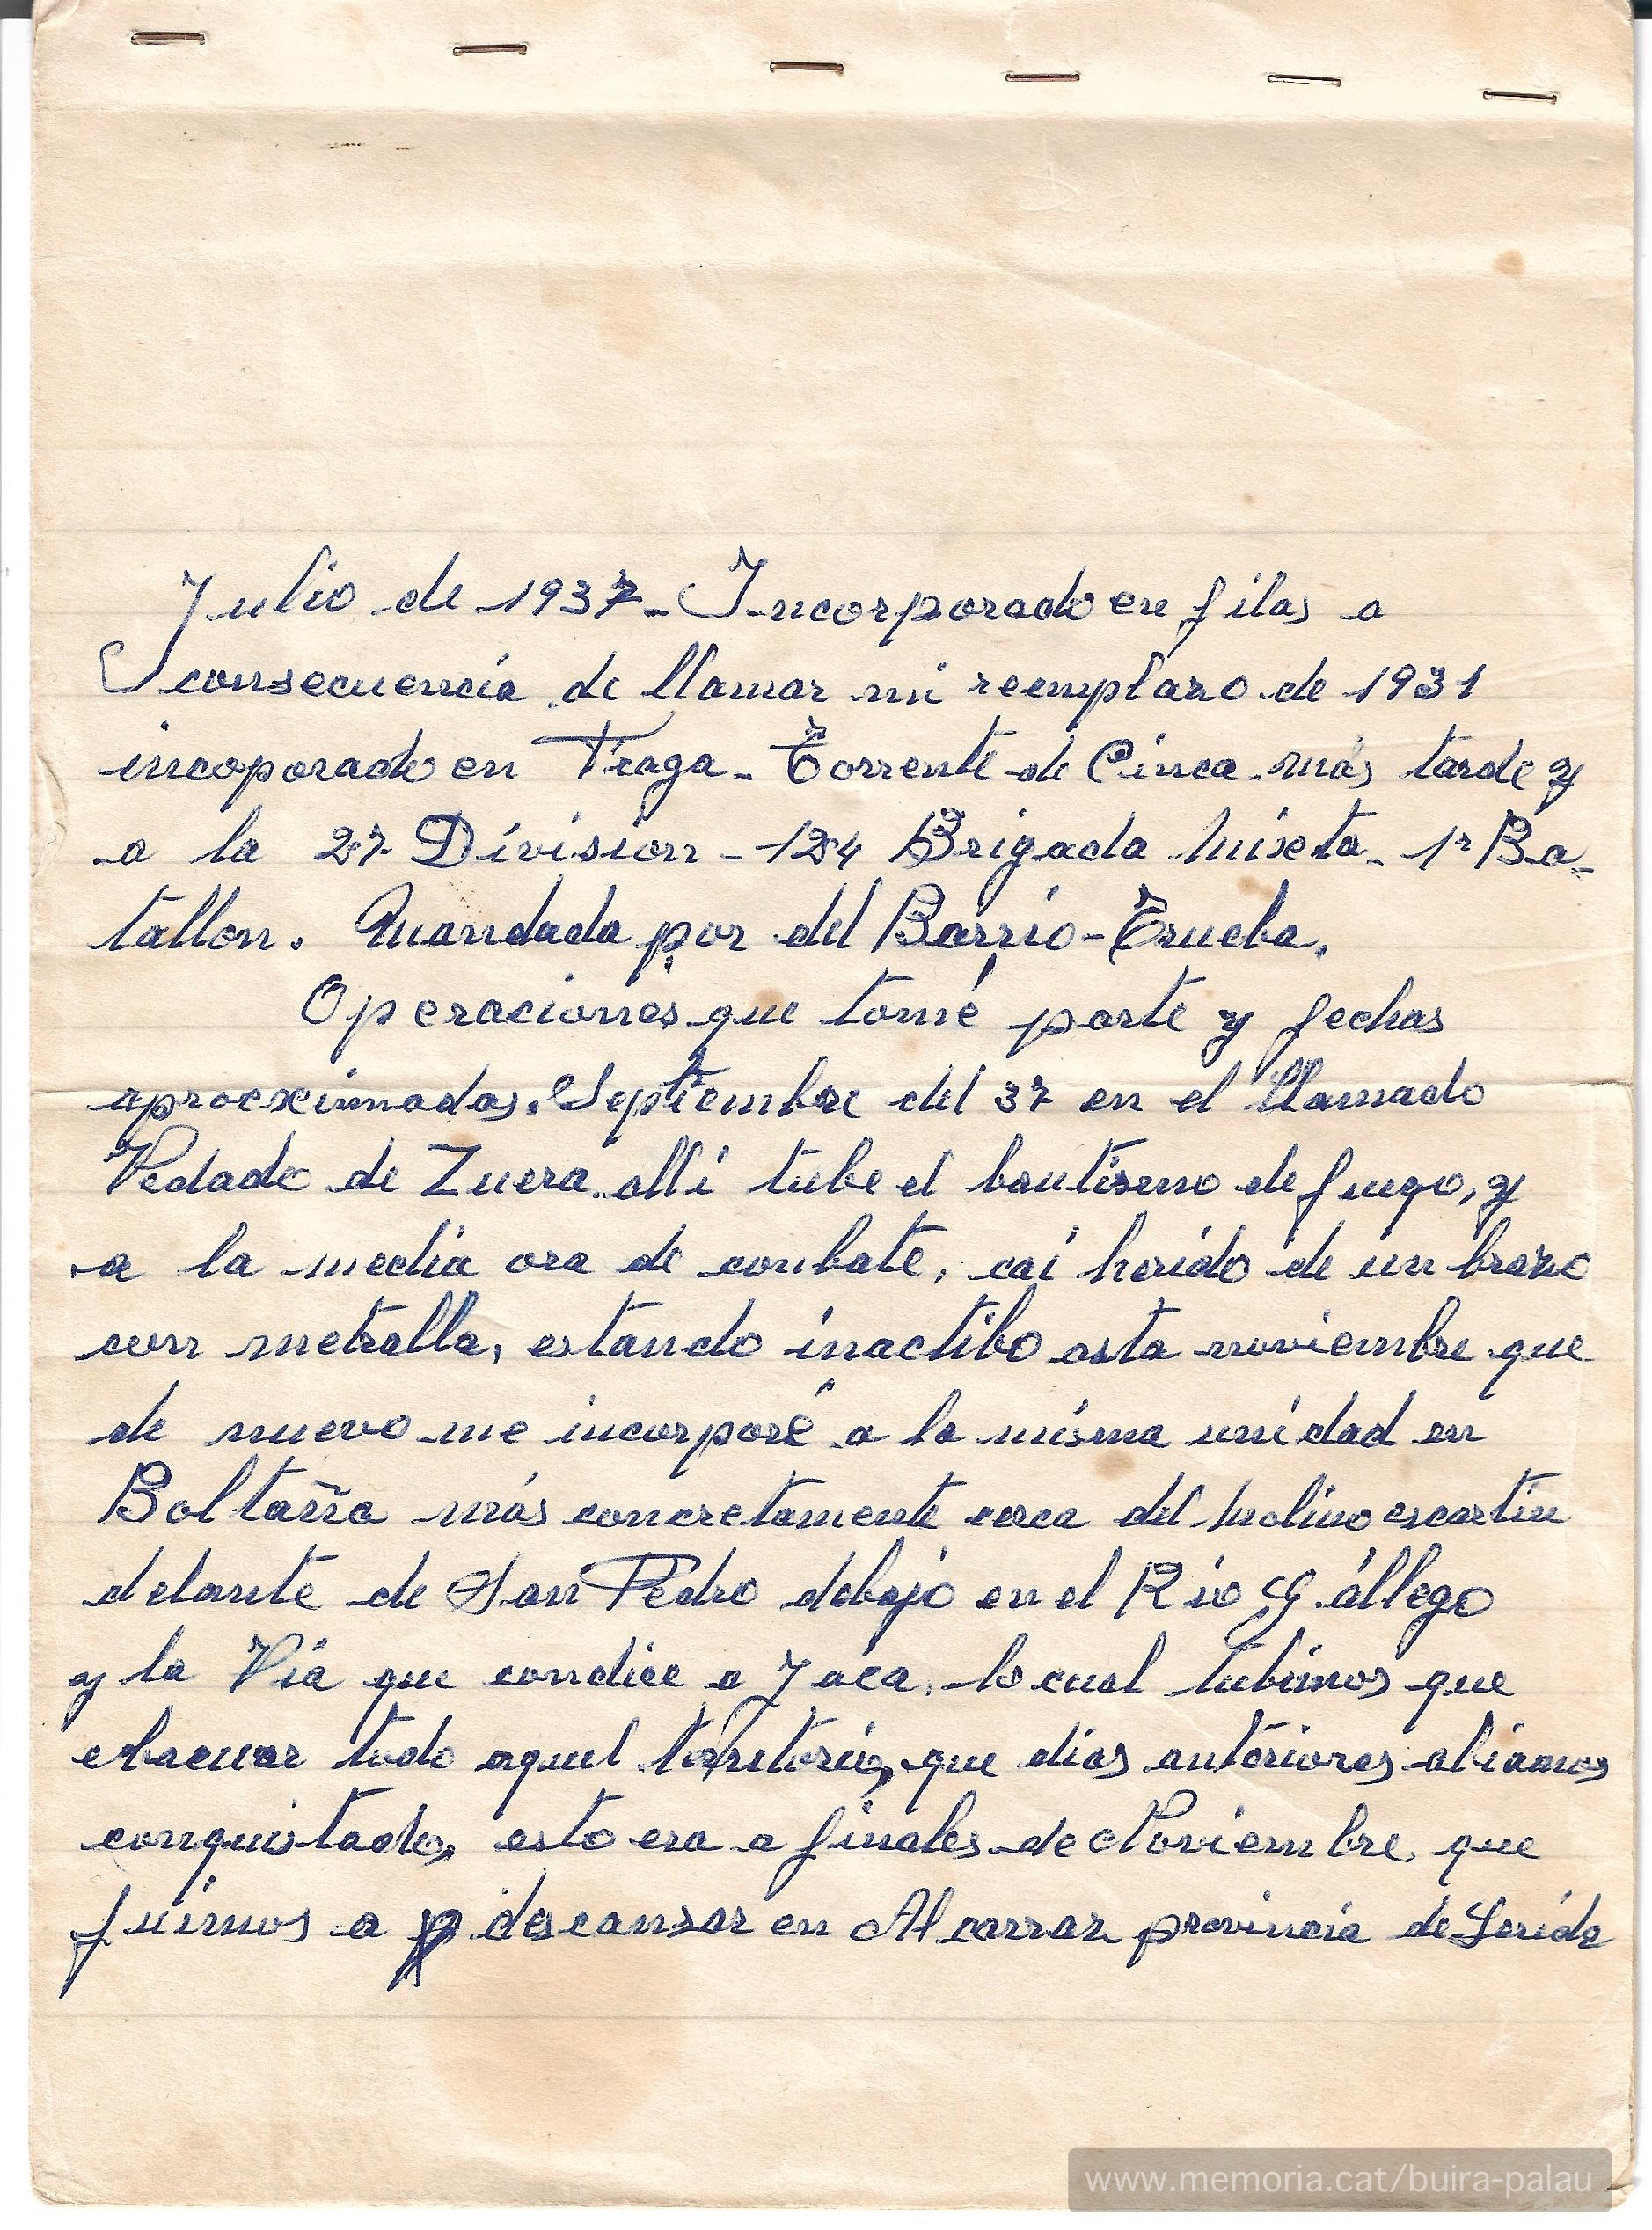 Julio de 1937- Incorporado en filas a
consecuencia de llamar mi reemplazo de 1931
incoporado en Fraga - Torrente de Cinca más tarde y
a la 27 Division - 124 Brigada Mixta - 1r Ba-
tallon. Mandada por del Barrio - Trueba.
Operaciones que tomé parte y fechas
aprocximadas. Septiembre del 37 en el llamado
Vedado de Zuera allí tube el bautismo de fuego, y
a la media ora de conbate, caí herido de un brazo
con metralla, estando inactibo asta noviembre que
de nuevo me incorporé a la misma unidad en
Boltaña más concretamente cerca del Molino escartin
delante de San Pedro debajo en el Rio Gállego
y la Vía que condice a Jaca, lo cual tubimos que
ebacuar todo aquel territorio, que días anteriores abiamos
conquistado, esto era a finales de Noviembre, que
fuimos a descansar en Alcarraz provincia de Lerida
www.memoria.cat/buira-palau